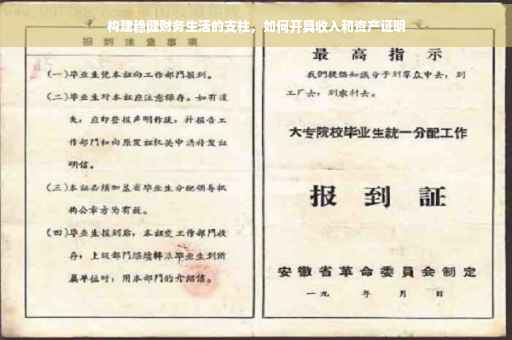 构建稳健财务生活的支柱，如何开具收入和资产证明
报到注意事项
(一)毕业生凭本证向工作部门报到。
(二)毕业生对本证应注意保存。如有遗
失，应即登报声明作废，并报告工
作部门和向原发证机关申请补发证
明信。
(三)本证必须加盖省毕业生分配领导机
构公章方为有效。
(四)毕业生报到后，本证交工作部门收
存；上级部门
毕业生到所
属单位时，用本部门的介绍信。
最高指示
我们提倡知识分子到群众中去，到
工厂去，到农村去。
大专院校毕业生统一分配工作
报到証
安徽省革命委員会制定
一九 年 月 日